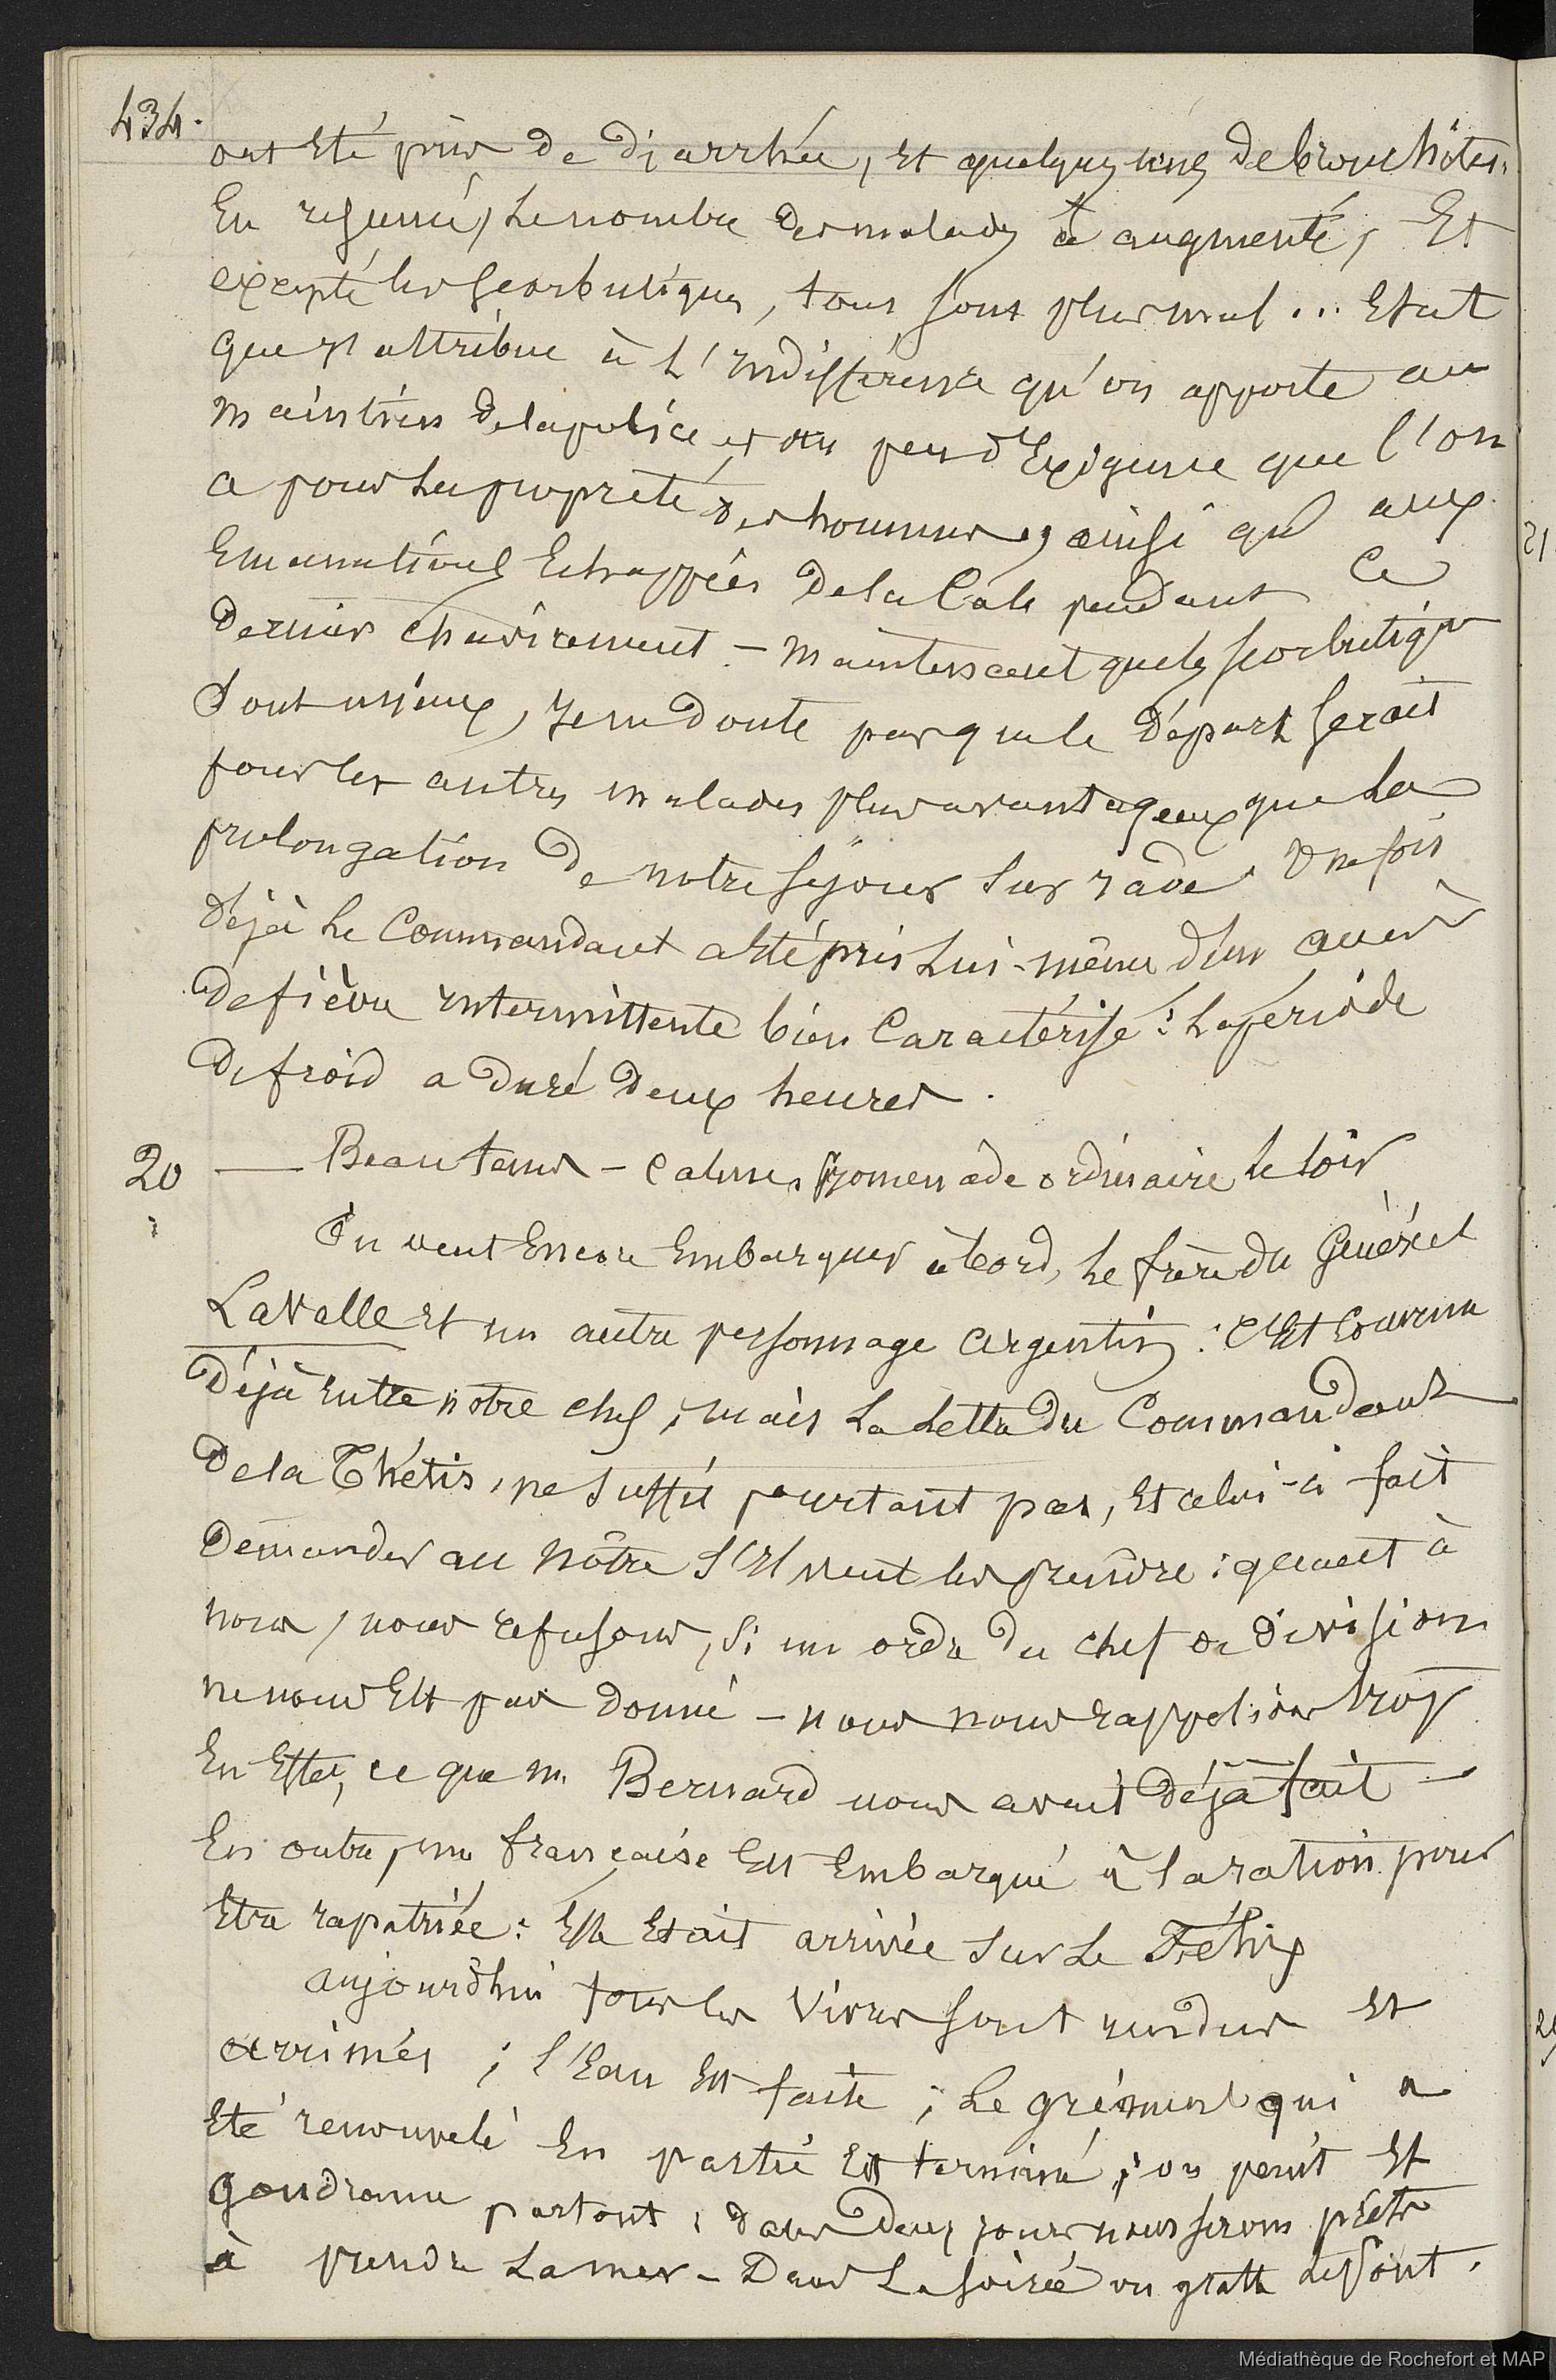 434.
ont été pris de diarrhée, et quelques uns de bronchites.
En resumé, le nombre des malades a augmenté, Et
excepté les scorbutiques, tous sont plus mal ... Etat
que j'attribue à L'indifférence qu'on apporte au
maintien de la police et au peu d'Exigence que l'on
a pour la propreté des hommes, ainsi qu'aux
Emanations Echappées de la Cale pendant ce
dernier chavirement. - Maintenant que les scorbutiques
sont mieux, je ne doute pas que le départ serait
pour les autres malades plus avantageux que la
prolongation de notre séjour sur rade. Une fois
déjà le Commandant a été pris lui-même d'un accès
de fièvre intermittente bien Caractérisé : la période
de froid a duré deux heures.
20 — Beau tems - calme, promenade ordinaire le soir
On veut Encore Embarquer à bord, le frère du Général
Lavalle et un autre personnage argentin : C'est convenu
déjà entre notre chef ; mais la lettre du Commandant
de la Thétis, ne suffit pourtant pas, et celui-ci fait
demander au nôtre s'Il veut les prendre : quant à
nous, nous refusons, si un ordre du chef de division
ne nous Est pas donné - nous nous rappelions trop
En Effet, ce que M. Bernard nous avait déjà fait -
En outre, une française Est Embarqué à la ration pour
Etre rapatriée : Elle Etait arrivée sur le Félix
aujourd'hui tous les vivres sont rendus et
arrimés ; l'Eau Est faite ; Le gréement qui a
Eté renouvelé En partie Est terminé ; on peint Et
goudronne partout, dans deux jours nous serons prêts
à prendre La mer - Dans La soirée on gratte le pont.
21